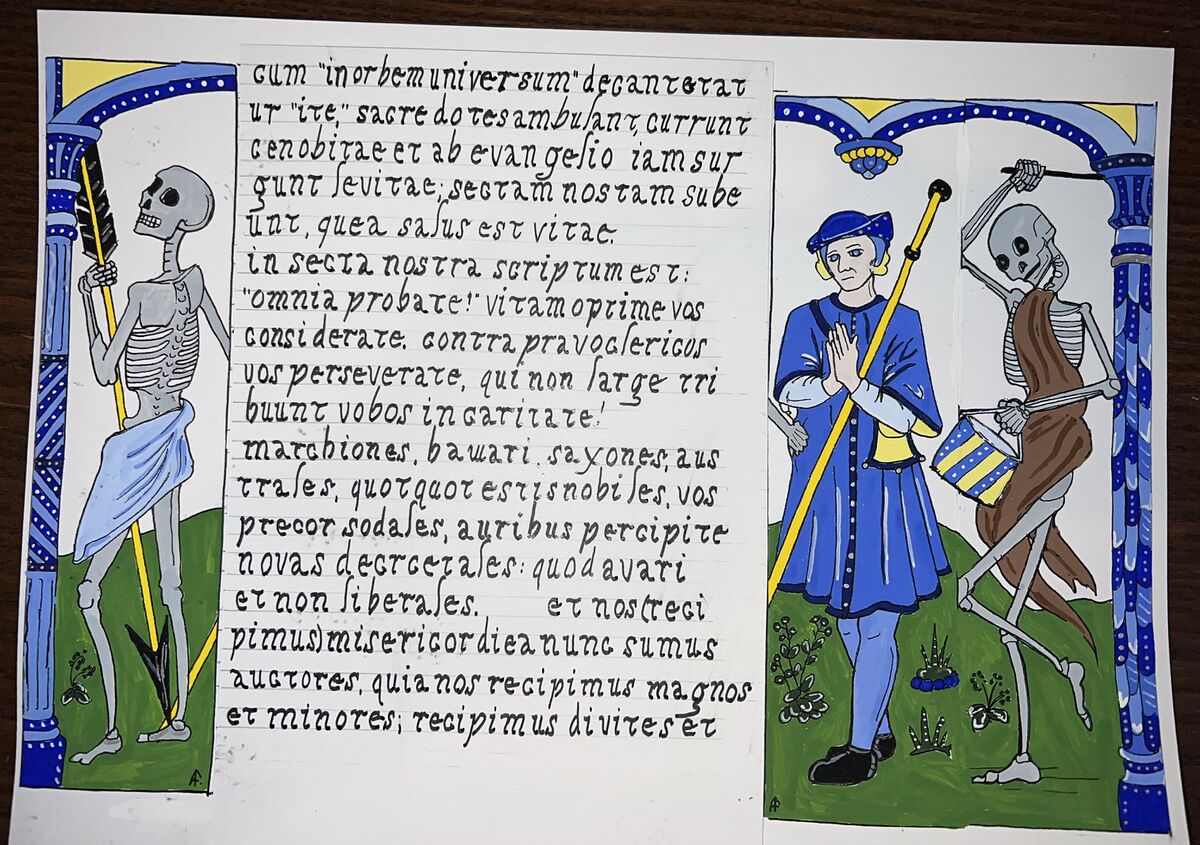 cum "in orbem universum" decantetat
ur "ite," sacredotes ambulant, currunt
cenobitae et ab evangelio iam sur
gunt levitae; sectam nostam sube
unt, quea salus est vitae.
in secta nostra scriptum est:
"omnia probate!" vitam optime vos
considerate. contra pravos clericos
vos perseverate, qui non large tri
buunt vobos in caritate!
marchiones, bawari, saxones, aus
trales, quotquot estis nobiles, vos
precor sodales, auribus percipite
novas decrcetales: quod avari
et non liberales. et nos (reci
pimus) misericordiea nunc sumus
auctores, quia nos recipimus magnos
et minores; recipimus divites et
AF
AF